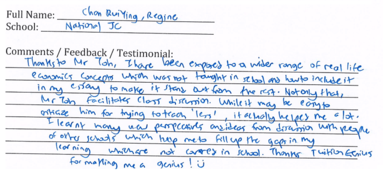 Full Name: Chan Rui Ying, Regine
School: National JC
Comments / Feedback / Testimonial:
Thanks to Mr Toh, I have been exposed to a wider range of real life
economics concepts which was not taught in school and how to include it
in my essay to make it stand out from the rest. Not only that,
Mr Toh facilitates class discussion. While it may be easy to
criticise him for trying to teach 'less', it actually helped me a lot.
I learnt many new perspectives and ideas from discussion with people
of other schools which help me to fill up the gaps in my
learning which are not covered in school. Thanks Tuition Genius
for making me a genius! :)